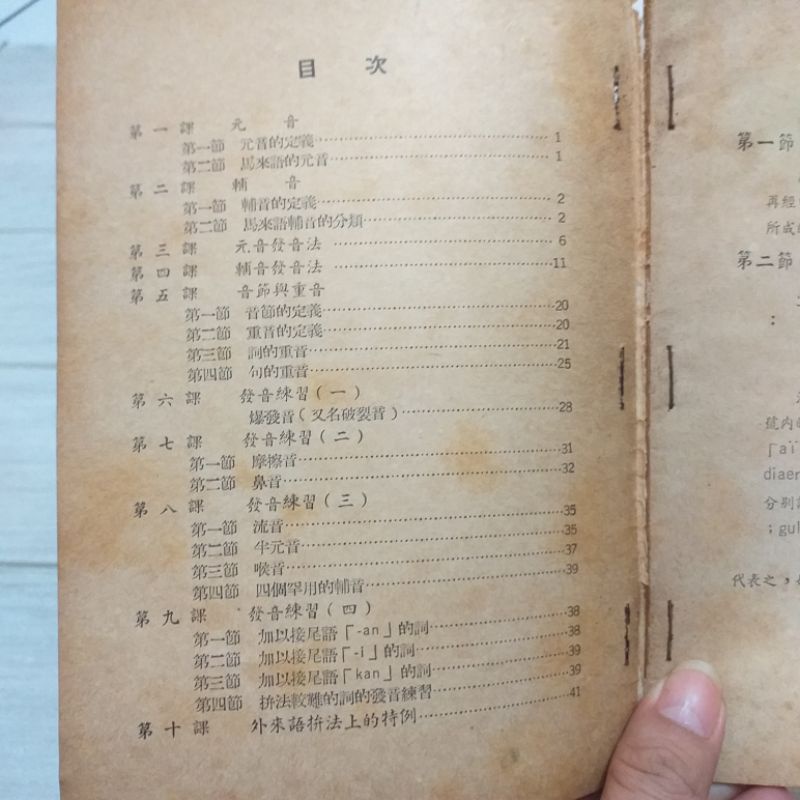 目 次
第一課 元 音
第一節 元音的定義 1
第二節 馬來語的元音 1
第二課 輔 音
第一節 輔音的定義 2
第二節 馬來語輔音的分類 2
第三課 元音發音法 6
第四課 輔音發音法 11
第五課 音節與重音
第一節 音節的定義 20
第二節 重音的定義 20
第三節 詞的重音 21
第四節 句的重音 25
第六課 發音練習(一)
爆發音(又名破裂音) 28
第七課 發音練習(二)
第一節 摩擦音 31
第二節 鼻音 32
第八課 發音練習(三)
第一節 流音 35
第二節 半元音 35
第三節 喉音 37
第四節 四個罕用的輔音 39
第九課 發音練習(四)
第一節 加以接尾語「-an」的詞 38
第二節 加以接尾語「-i」的詞 38
第三節 加以接尾語「kan」的詞 39
第四節 拚法較難的詞的發音練習 39
第十課 外來語拚法上的特例 41
第一節
再經
所成的
第二節
：
號內
「aï
diaer
分別
；gul
代表之，